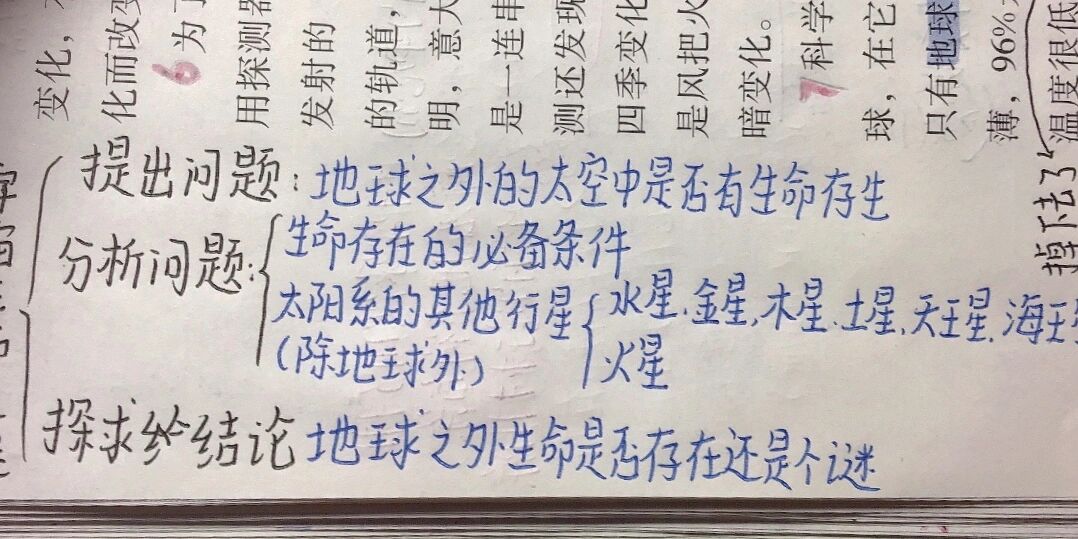 变化，
化而改变
6 为了
用探测器
发射的
的轨道，
明，意大
是一连串
测还发现
四季变化
是风把火
暗变化。
7 科学
球，在它
只有地球
薄，96%
温度很低
掉下去了
提出问题：地球之外的太空中是否有生命存生
分析问题：生命存在的必备条件
太阳系的其他行星 水星、金星、木星、土星、天王星、海王
(除地球外) 火星
探求 结论 地球之外生命是否存在还是个谜